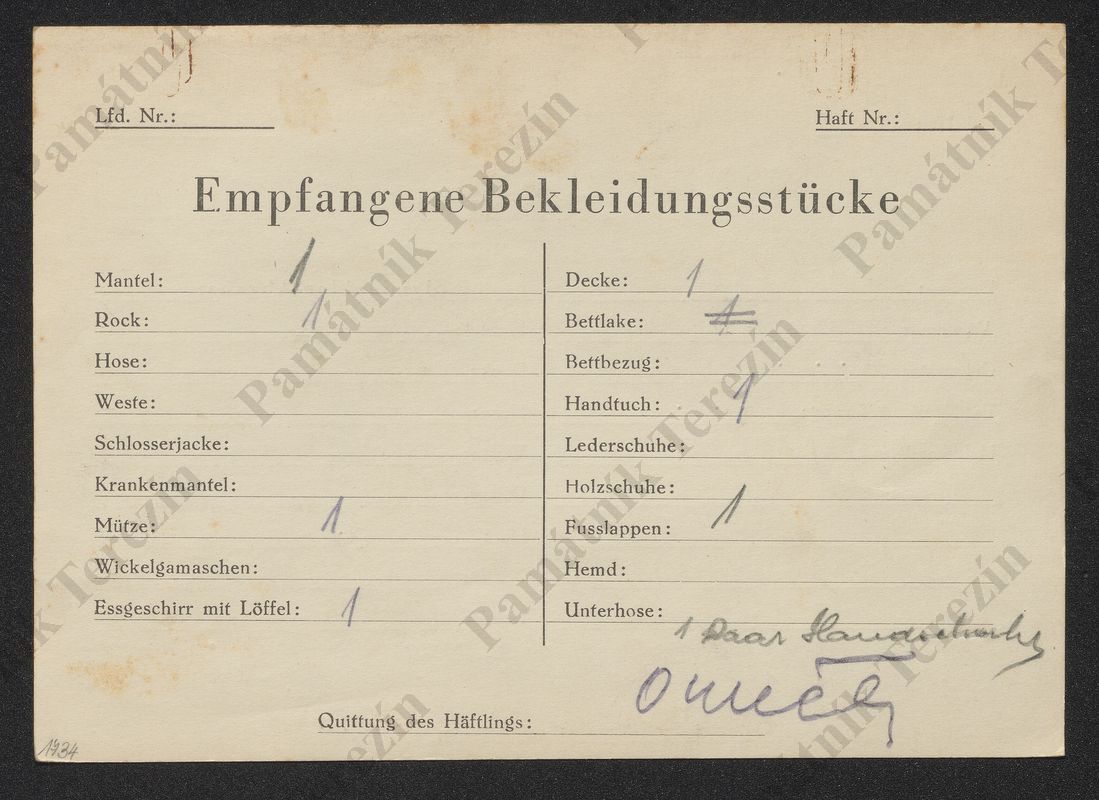 Lfd. Nr.:
Haft Nr.:
Empfangene Bekleidungsstücke
Mantel: 1
Rock: 1
Hose:
Weste:
Schlosserjacke:
Krankenmantel:
Mütze: 1
Wickelgamaschen:
Essgeschirr mit Löffel: 1
Decke: 1
Bettlake: 1
Bettbezug:
Handtuch: 1
Lederschuhe:
Holzschuhe:
Fusslappen: 1
Hemd:
Unterhose:
1 Paar Handschuhe
Quittung des Häftlings:
1734
Památník Terezín